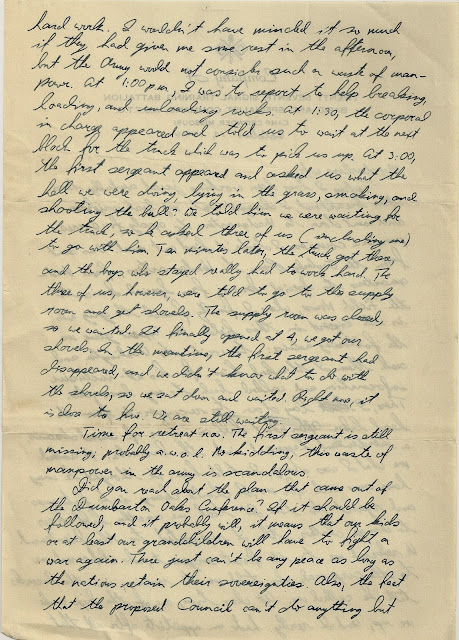 hard work. I wouldn't have minded it so much
if they had given me some rest in the afternoon,
but the Army would not consider such a waste of man-
power. At 1:00 p.m., I was to report to help breaking,
loading, and unloading rocks. At 1:30, the corporal
in charge appeared and told us to wait at the next
block for the truck which was to pick us up. At 3:00,
the first sergeant appeared and asked us what the
hell we were doing, lying in the grass, smoking, and
shooting the bull? We told him we were waiting for
the truck, so he asked three of us (including me)
to go with him. Ten minutes later, the truck got there,
and the boys who stayed really had to work hard. The
three of us, however, were told to go to the supply
room and get shovels. The supply room was closed,
so we waited. It finally opened at 4, we got our
shovels. In the meantime, the first sergeant had
disappeared, and we didn't know what to do with
the shovels, so we sat down and waited. Right now, it
is close to five. We are still waiting.
Time for retreat now. The first sergeant is still
missing; probably a.w.o.l. No kidding, this waste of
manpower in the army is scandalous.
Did you read about the plan that came out of
the Dumbarton Oaks Conference? If it should be
followed, and it probably will, it means that our kids
or at least our grandchildren will have to fight a
war again. There just can't be any peace as long as
the nations retain their sovereignties. Also, the fact
that the proposed Council can't do anything but